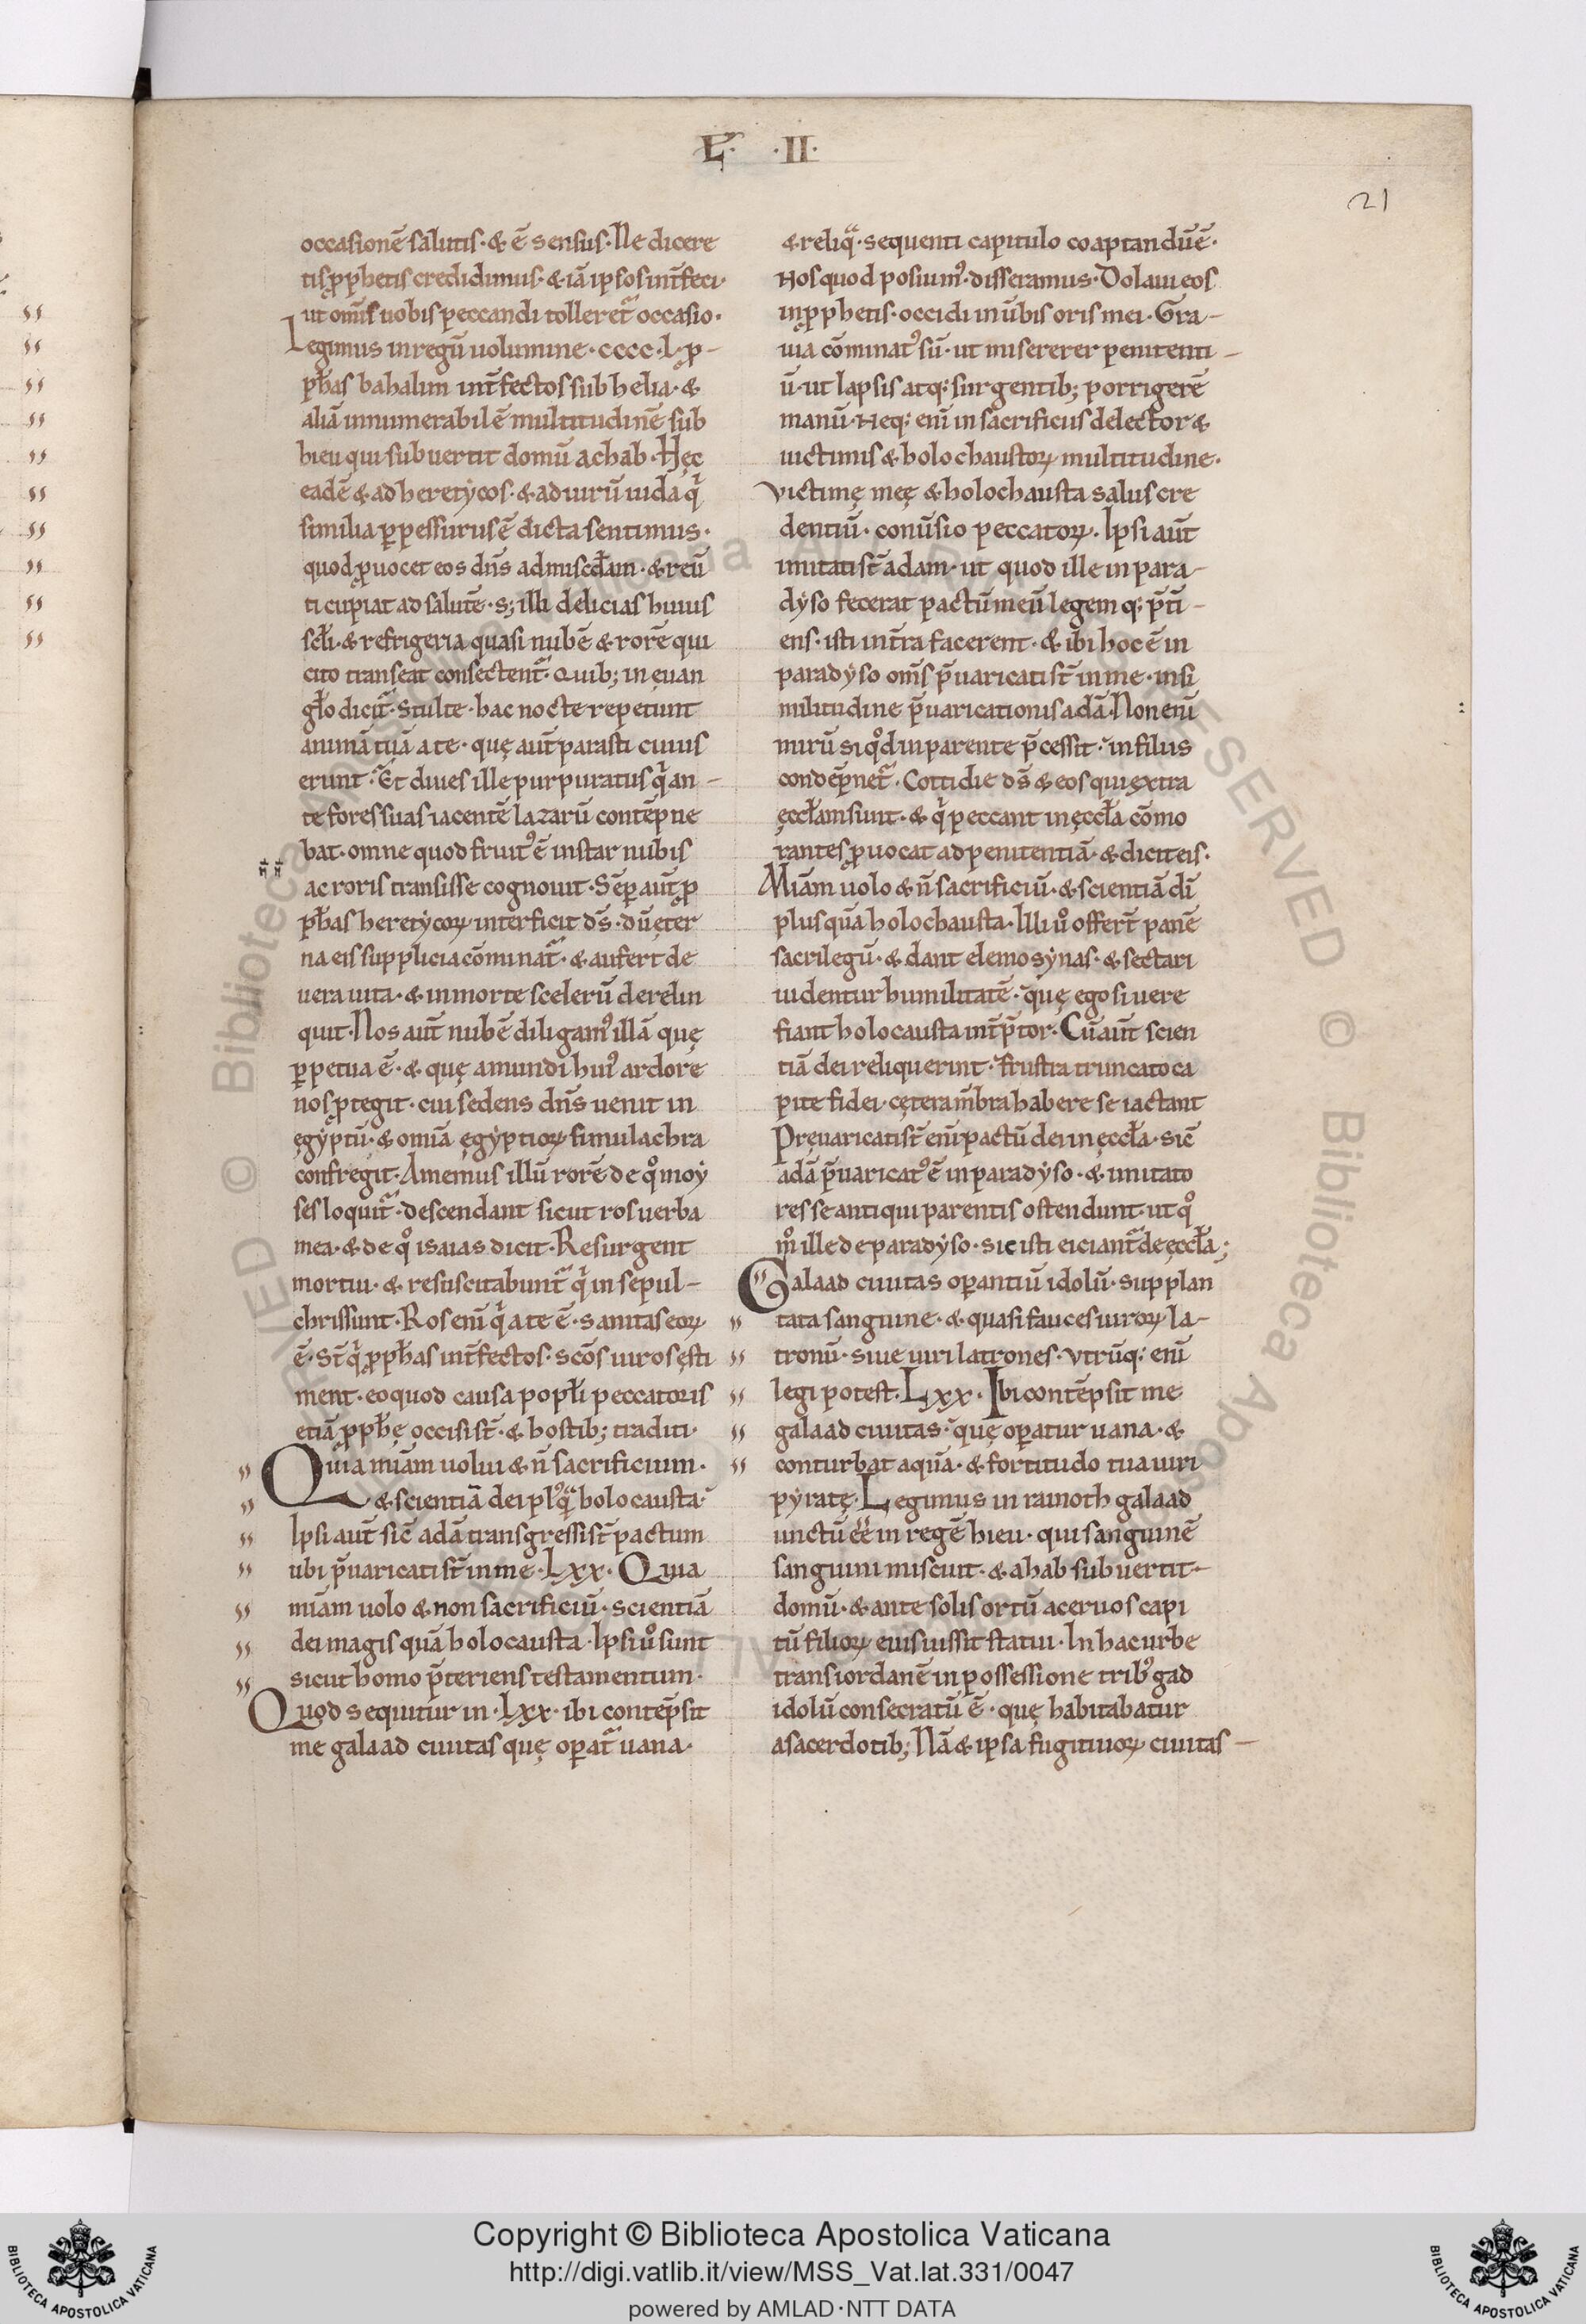 L̃. ·II·
21
occasionē salutis· & ē sensus· Ne dicere
tis ꝓphetis credidimus· & iā ipsos int̄feci·
ut om̄s uobis peccandi tolleret᷑ occasio·
Legimus in regū uolumine· cccc· L· ꝓ-
ph̄as bahalim int̄fectos sub helia· &
aliā innumerabilē multitudinē sub
hieu qui subuertit domū achab· Hęc
eadē & ad heretẏcos· & ad uirū iuda qͥ
similia ꝑpessurus ē dicta sentimus·
quod ꝓuocet eos dn̄s ad misc̄dam· & reū
ti cupiat ad salutē· s; illi delicias huius
scl̄i· & refrigeria quasi nubē & rorē qui
cito transeat consectent᷑· Quib; in euan
gl̄o dicit᷑· Stulte· hac nocte repetunt
animā tuā a te· quę aut̄ parasti cuius
erunt· Et diues ille purpuratus qͥ an-
te fores suas iacentē lazarū contēpne
bat· omne quod fruitꝰ ē instar nubis
ac roris transisse cognouit· Sēꝑ aut̄ ꝓ
ph̄as heretẏcoꝝ interficit ds̄· dū ęter
na eis supplicia cōminat᷑· & aufert de
uera uita· & in morte scelerū derelin
quit· Nos aut̄ nubē diligamꝰ illā quę
ꝑpetua ē· & quę a mundi huiꝰ ardore
nos ꝓtegit· cui sedens dn̄s uenit in
ęgẏptū· & omīa ęgẏptioꝝ simulachra
confregit· Amemus illū rorē de qͦ moẏ
ses loquit᷑· descendant sicut ros uerba
mea· & de qͦ isaias dicit· Resurgent
mortui· & resuscitabunt᷑ qͥ in sepul-
chris sunt· Ros enī qͥ a te ē· sanitas eoꝝ
ē· St̄ qͥ ꝓph̄as int̄fectos· scōs uiros ęsti
ment· eo quod causa popl̄i peccatoris
etiā ꝓph̄ę occisi st̄· & hostib; traditi·
Quia mīam uolui & n̄ sacrificium·
& scientiā dei plꝰ qͣ holocausta·
Ipsi aut̄ sic̄ adā transgressi st̄ pactum
ubi p̄uaricati st̄ in me· Lxx· Quia
mīam uolo & non sacrificiū· scientiā
dei magis quā holocausta· Ipsi uͦ sunt
sicut homo p̄teriens testamentum·
Quod sequitur in· Lxx· ibi contēpsit
me galaad ciuitas quę oꝑat᷑ uana·
& reliqͣ· sequenti capitulo coaptandū ē·
Nos quod posuimꝰ· disseramus· Dolaui eos
in ꝓphetis· occidi in ūbis oris mei· Gra-
uia cōminatꝰ sū· ut misererer penitenti-
ū· ut lapsis atq; surgentib; porrigerē
manū· Neq; enī in sacrificiis delector &
uictimis & holochaustoꝝ multitudine·
Victimę meę & holochausta salus cre
dentiū· conūsio peccatoꝝ· Ipsi aut̄
imitati st̄ adam· ut quod ille in para-
dẏso fecerat pactū meū legem q; p̄ti-
ens· isti in t̄ra facerent· & ibi hoc ē in
paradẏso om̄s p̄uaricati st̄ in me· in si
militudine p̄uaricationis adā· Non enī
mirū si qͦd in parente p̄cessit· in filiis
condēpnet᷑· Cottidie ds̄ & eos qui extra
ęccl̄am sunt· & qͥ peccant in ęccl̄a cōmo
rantes ꝓuocat ad penitentiā· & dicit eis·
Mīam uolo & n̄ sacrificiū· & scientiā dī
plus quā holochausta· Illi uͦ offert̄ panē
sacrilegū· & dant elemosẏnas· & sectari
uidentur humilitatē· quę ego si uere
fiant holocausta int̄p̄tor· Cū aut̄ scien
tiā dei reliquerint· frustra truncato ca
pite fidei· cętera mb̄ra habere se iactant
Pręuaricati st̄ enī pactū dei in ęccl̄a· sic̄
adā p̄uaricatꝰ ē in paradẏso· & imitato
res se antiqui parentis ostendunt· ut qͦ
mͦ ille de paradẏso· sic isti eiciant᷑ de ęccl̄a;
Galaad ciuitas oꝑantiū idolū· supplan
tata sanguine· & quasi fauces uiroꝝ la-
tronū· siue uiri latrones· Vtrūq; enī
legi potest· Lxx· Ibi contēpsit me
galaad ciuitas· quę oꝑatur uana· &
conturbat aquā· & fortitudo tua uiri
pẏratę· Legimus in ramoth galaad
unctū ēē in regē hieu· qui sanguinē
sanguini miscuit· & ahab subuertit-
domū· & ante solis ortū aceruos capi
tū filioꝝ eius iussit statui· In hac urbe
trans iordanē in possessione tribꝰ gad
idolū consecratū ē· quę habitabatur
a sacerdotib; Nā & ipsa fugitiuoꝝ ciuitas-
Copyright © Biblioteca Apostolica Vaticana
http://digi.vatlib.it/view/MSS_Vat.lat.331/0047
powered by AMLAD·NTT DATA